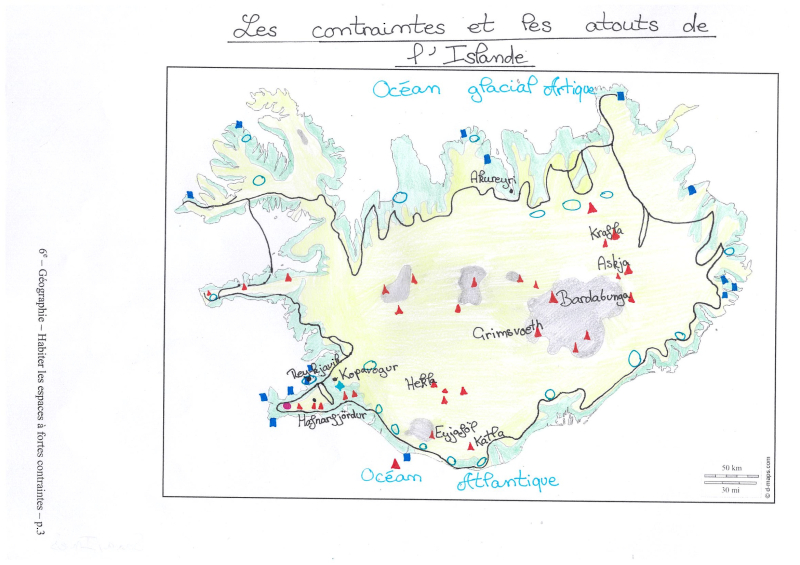 Les contraintes et les atouts de
l'Islande
Océan glacial Artique
Akureyri
Krafla
Askja
Bardabunga
Grimsvoeth
Reykjavik
Kopavogur
Hekla
Hafnarfjördur
Eyjafjöl
Katla
Océan Atlantique
50 km
30 mi
© d-maps.com
6e – Géographie – Habiter les espaces à fortes contraintes – p.3